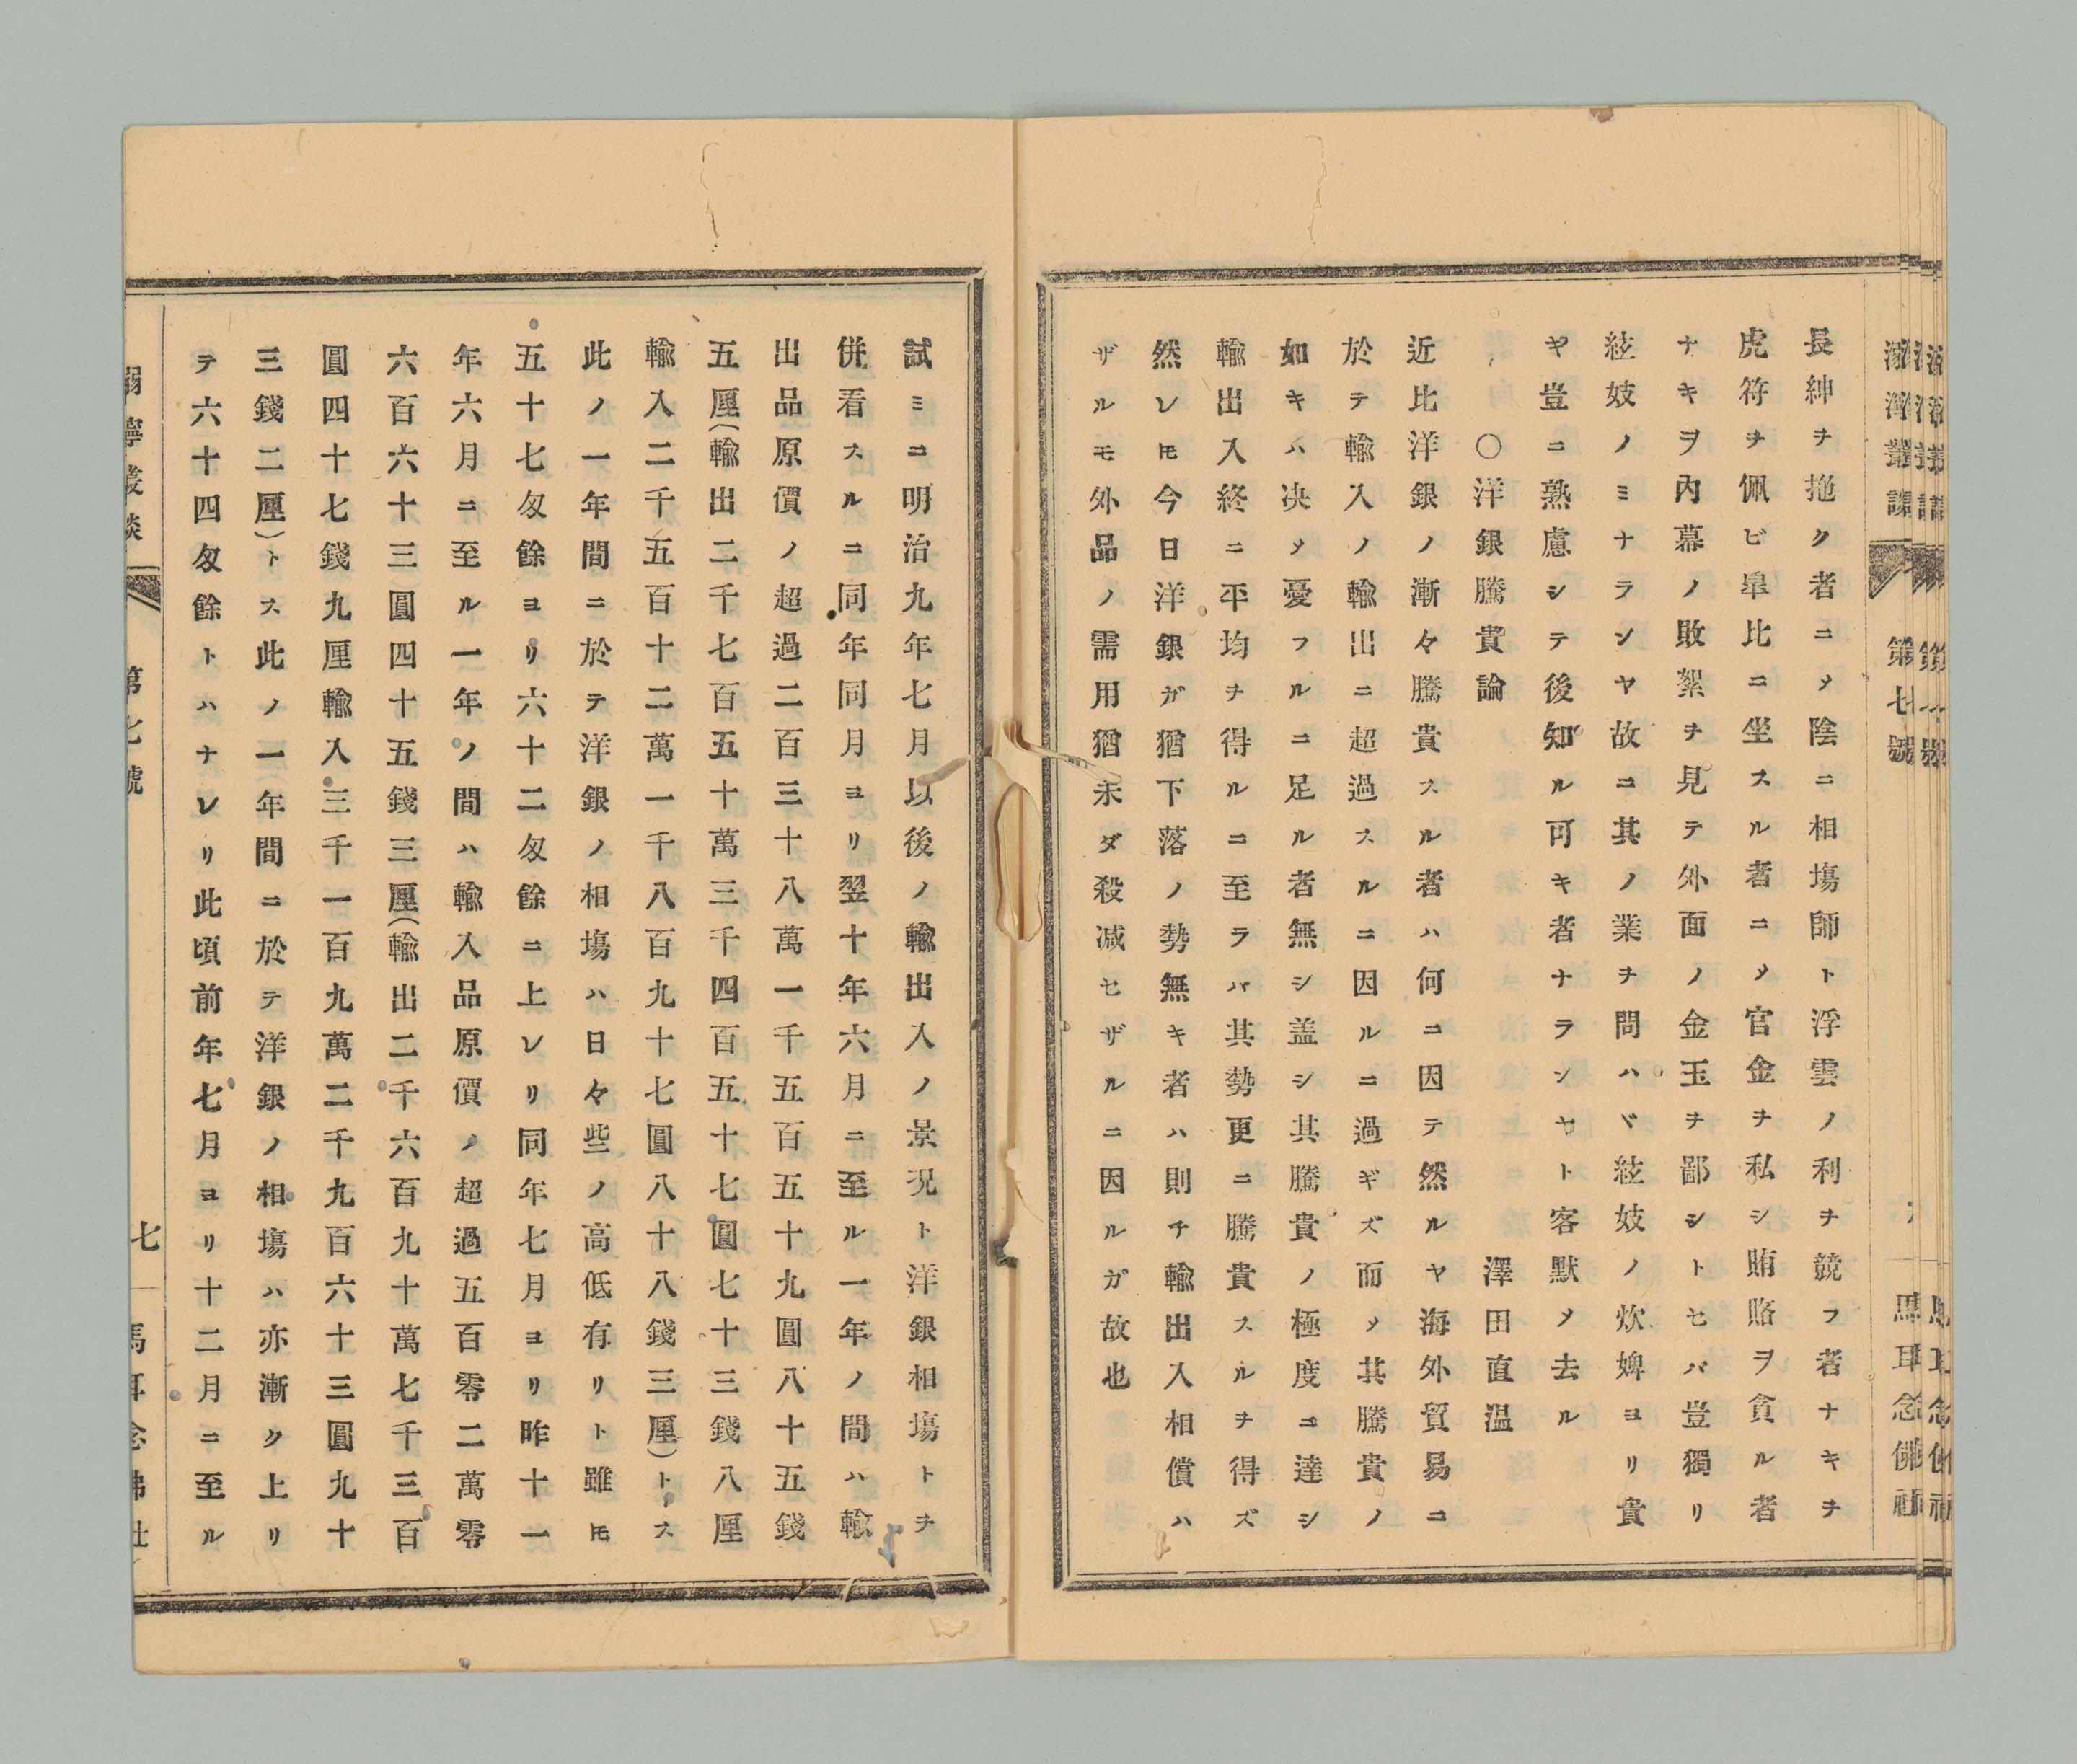 長紳ヲ拖ク者ニ〆陰ニ相塲師ト浮雲ノ利ヲ競フ者ナキヲ
虎符ヲ佩ビ皐比ニ坐スル者ニ〆官金ヲ私シ賄賂ヲ貪ル者
ナキヲ內幕ノ敗絮ヲ見テ外面ノ金玉ヲ鄙シトセバ豈獨リ
絃妓ノミナランヤ故ニ其ノ業ヲ問ハヾ絃妓ノ炊婢ヨリ貴
キヤ豈ニ熟慮シテ後知ル可キ者ナランヤト客默〆去ル
○洋銀騰貴論 澤田直温
近比洋銀ノ漸々騰貴スル者ハ何ニ因テ然ルヤ海外貿易ニ
於テ輸入ノ輸出ニ超過スルニ因ルニ過ギズ而〆其騰貴ノ
如キハ决〆憂フルニ足ル者無シ盖シ其騰貴ノ極度ニ達シ
輸出入終ニ平均ヲ得ルニ至ラバ其勢更ニ騰貴スルヲ得ズ
然レ𪜈今日洋銀ガ猶下落ノ勢無キ者ハ則チ輸出入相償ハ
ザルモ外品ノ需用猶未ダ殺减セザルニ因ルガ故也
試ミニ明治九年七月以後ノ輸出入ノ景况ト洋銀相塲トヲ
併看スルニ同年同月ヨリ翌十年六月ニ至ル一年ノ間ハ輸
出品原價ノ超過二百三十八萬一千五百五十九圓八十五錢
五厘(輸出二千七百五十萬三千四百五十七圓七十三錢八厘
輸入二千五百十二萬一千八百九十七圓八十八錢三厘)トス
此ノ一年間ニ於テ洋銀ノ相塲ハ日々些ノ高低有リト雖𪜈
五十七匁餘ヨリ六十二匁餘ニ上レリ同年七月ヨリ昨十一
年六月ニ至ル一年ノ間ハ輸入品原價ノ超過五百零二萬零
六百六十三圓四十五錢三厘(輸出二千六百九十萬七千三百
圓四十七錢九厘輸入三千一百九萬二千九百六十三圓九十
三錢二厘)トス此ノ一年間ニ於テ洋銀ノ相塲ハ亦漸ク上リ
テ六十四匁餘トハナレリ此頃前年七月ヨリ十二月ニ至ル
第七號
七
馬耳念佛社